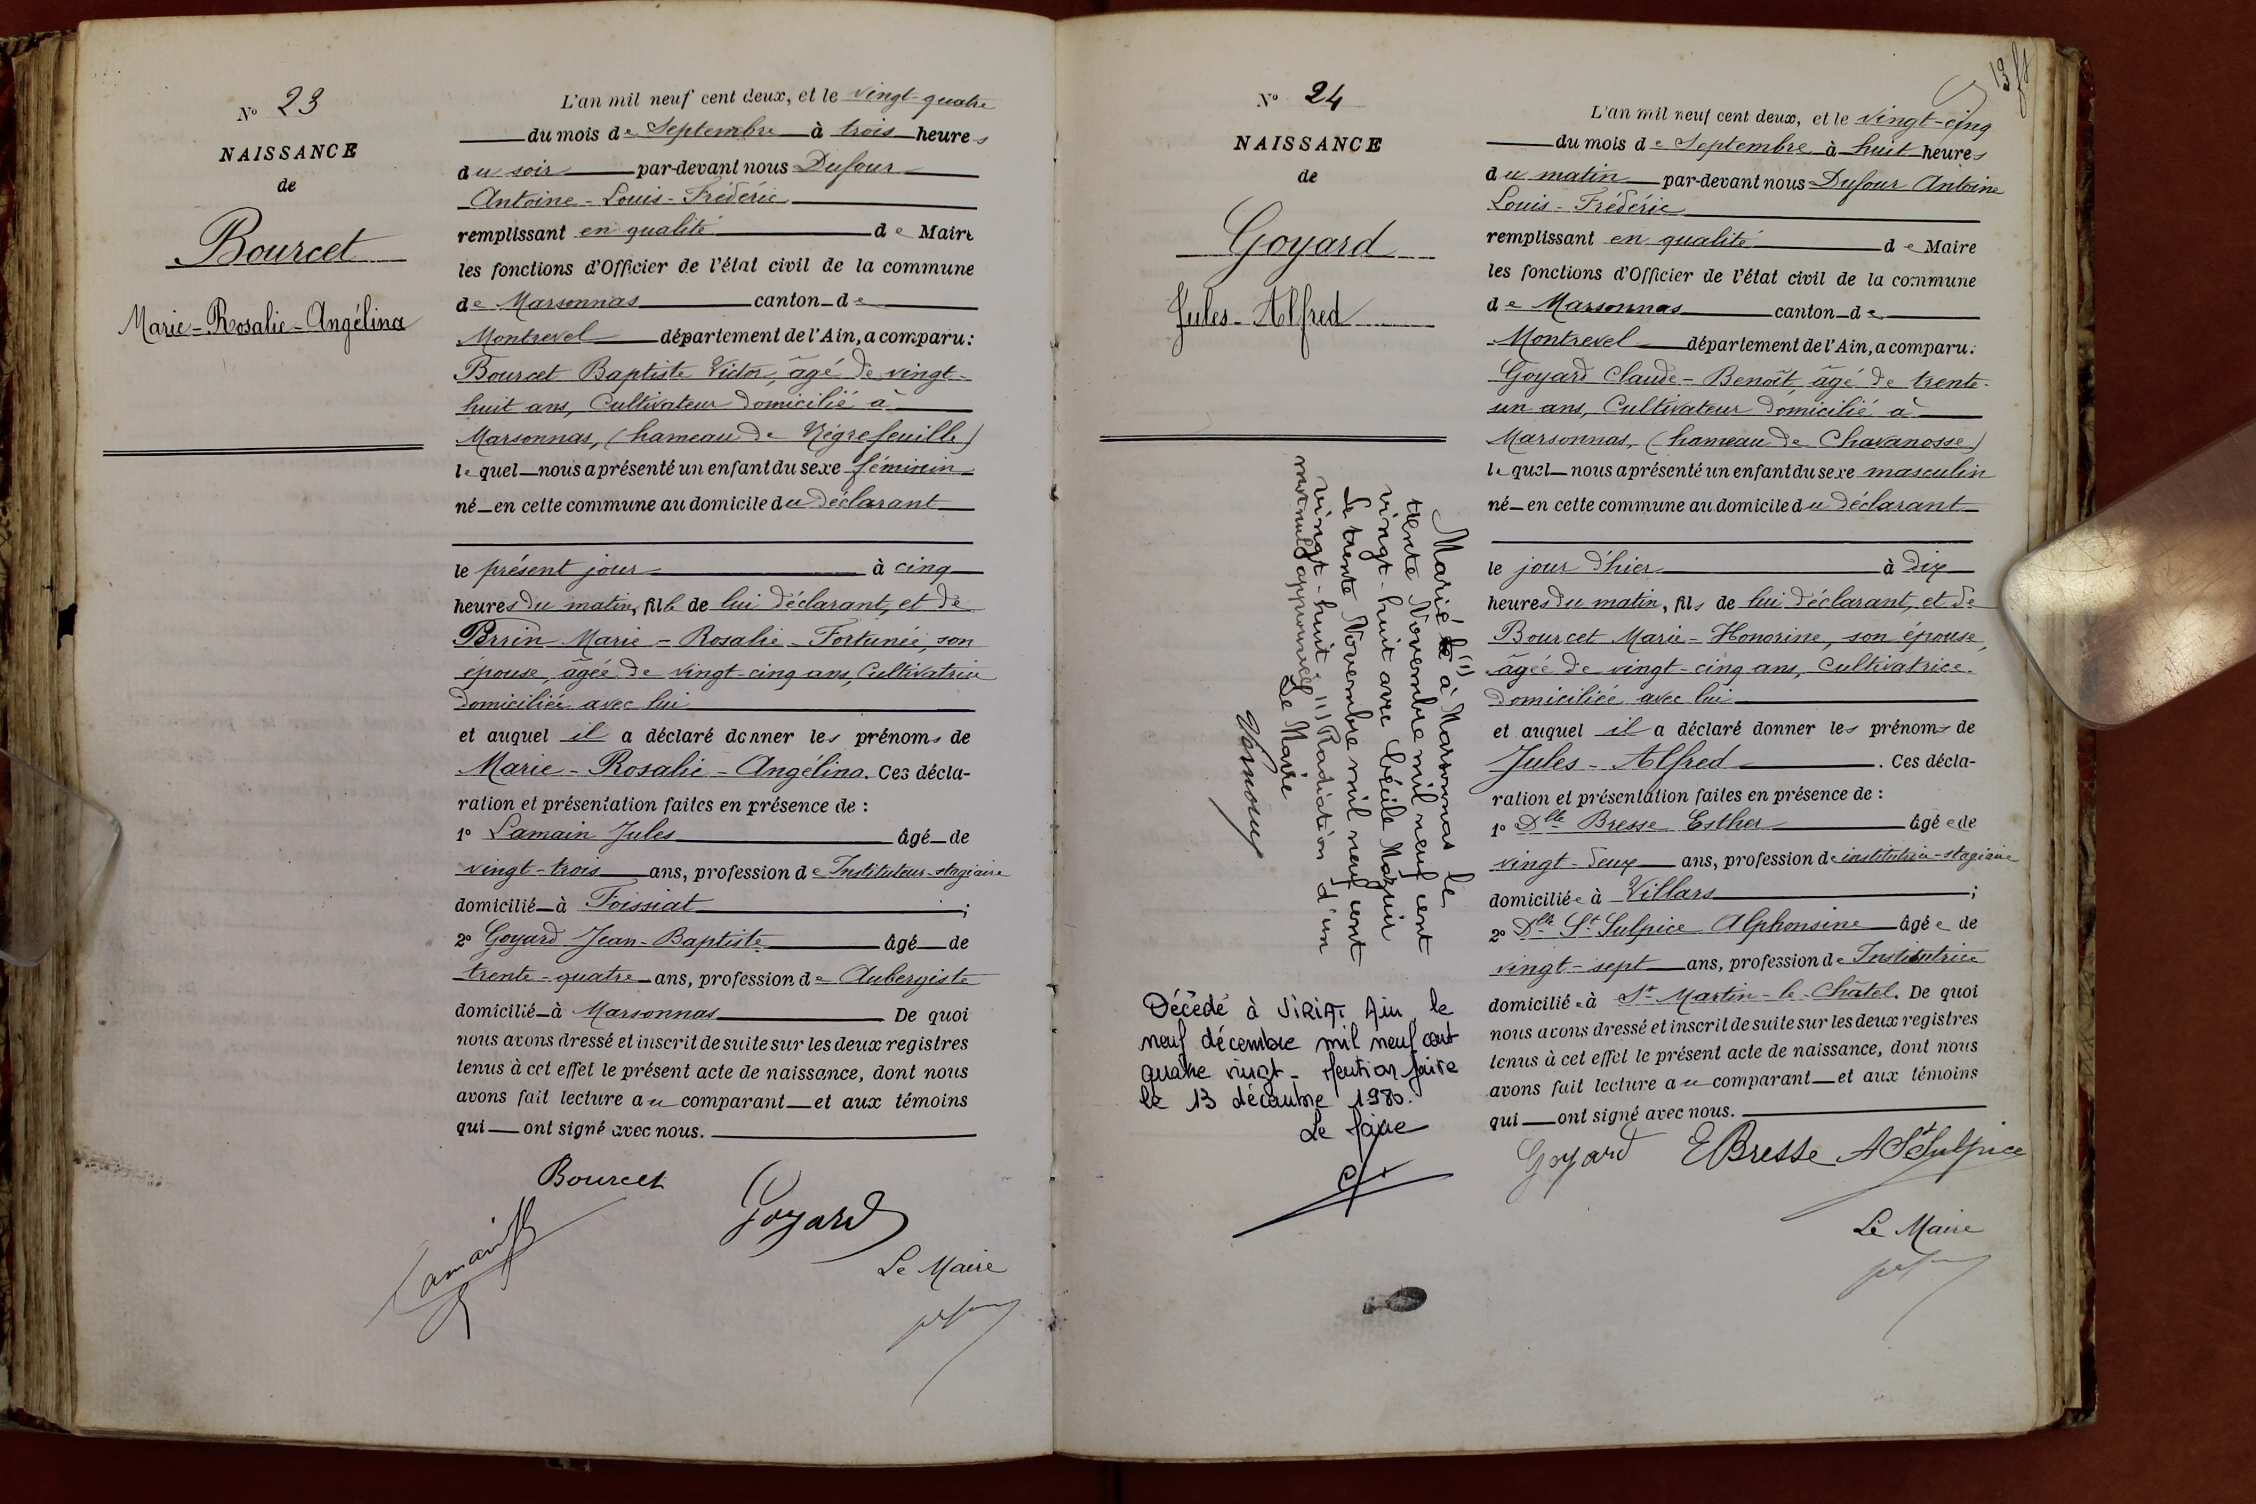 N° 23
NAISSANCE
de
Bourcet
Marie-Rosalie-Angélina
L'an mil neuf cent deux, et le vingt-quatre
du mois de Septembre à trois heures
du soir par-devant nous Dufour
Antoine-Louis-Frédéric
remplissant en qualité de Maire
les fonctions d'Officier de l'état civil de la commune
de Marsonnas canton de
Montrevel département de l'Ain, a comparu:
Bourcet Baptiste Victor, âgé de vingt-
huit ans, Cultivateur domicilié à
Marsonnas, (hameau de Négrefeuille)
lequel nous a présenté un enfant du sexe féminin
né en cette commune au domicile du déclarant
le présent jour à cinq
heures du matin, fille de lui déclarant, et de
Perrin Marie-Rosalie-Fortunée, son
épouse, âgée de vingt-cinq ans, Cultivatrice
domiciliée avec lui
et auquel il a déclaré donner les prénoms de
Marie-Rosalie-Angélina. Ces décla-
ration et présentation faites en présence de :
1° Lamain Jules âgé de
vingt-trois ans, profession de Instituteur-stagiaire
domicilié à Foissiat ;
2° Goyard Jean-Baptiste âgé de
trente-quatre ans, profession de Aubergiste
domicilié à Marsonnas De quoi
nous avons dressé et inscrit de suite sur les deux registres
tenus à cet effet le présent acte de naissance, dont nous
avons fait lecture au comparant et aux témoins
qui ont signé avec nous.
Bourcet
Goyard
Lamain
Le Maire
N° 24
NAISSANCE
de
Goyard
Jules-Alfred
Marié le (1) à Marsonnas le
trente Novembre mil neuf cent
vingt-huit avec Cécile Marguin
Le trente Novembre mil neuf cent
vingt-huit. (1) Radiation d'un
mot nul approuvée
Le Maire
Décédé à VIRIAT Ain le
neuf décembre mil neuf cent
quatre vingt - Mention faite
le 13 décembre 1980.
Le Maire
L'an mil neuf cent deux, et le vingt-cinq
du mois de Septembre à huit heures
du matin par-devant nous Dufour Antoine
Louis-Frédéric
remplissant en qualité de Maire
les fonctions d'Officier de l'état civil de la commune
de Marsonnas canton de
Montrevel département de l'Ain, a comparu:
Goyard Claude-Benoît, âgé de trente-
un ans, Cultivateur domicilié à
Marsonnas, (hameau de Chavanosse)
lequel nous a présenté un enfant du sexe masculin
né en cette commune au domicile du déclarant
le jour d'hier à dix
heures du matin, fils de lui déclarant, et de
Bourcet Marie-Honorine, son épouse,
âgée de vingt-cinq ans, Cultivatrice
domiciliée avec lui
et auquel il a déclaré donner les prénoms de
Jules-Alfred . Ces décla-
ration et présentation faites en présence de :
1° Dlle Bresse Esther âgée de
vingt-deux ans, profession de institutrice-stagiaire
domiciliée à Villars ;
2° Dlle St Sulpice Alphonsine âgée de
vingt-sept ans, profession de Institutrice
domiciliée à St Martin-le-Châtel. De quoi
nous avons dressé et inscrit de suite sur les deux registres
tenus à cet effet le présent acte de naissance, dont nous
avons fait lecture au comparant et aux témoins
qui ont signé avec nous.
Goyard EBresse A St Sulpice
Le Maire